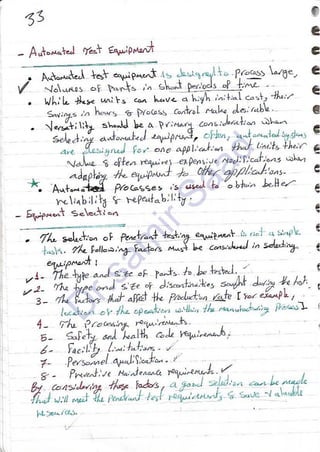 33
- Automated Test Equipment
• Automated test equipment is designed to process large,
Volumes of parts in short periods of time.
• While these units can have a high initial cost, their
Savings in hours & Process control make desirable.
• Versatility should be a Primary consideration when
Selecting automated equipment, often, automated systems
are designed for one application that limits their
Value & often requires expensive modifications when
adapting the equipment to other applications.
• Automated Processes is used to obtain better
reliability & repeatability.
- Equipment Selection
• The selection of Penetrant testing equipment is not a simple
task. The following factors must be considered in selecting
equipment:
1- The type and size of parts to be tested.
2- The type and size of discontinuities sought during the test.
3- The factors that affect the Production rate [for example,
location of the operation within the manufacturing process].
4- The Processing requirements.
5- Safety and health code requirements.
6- Facility Limitations.
7- Personnel qualification.
8- Preventive Maintenance requirements.
By considering these factors, a good selection can be made
that will meet the Penetrant test requirements & save valuable
resources.